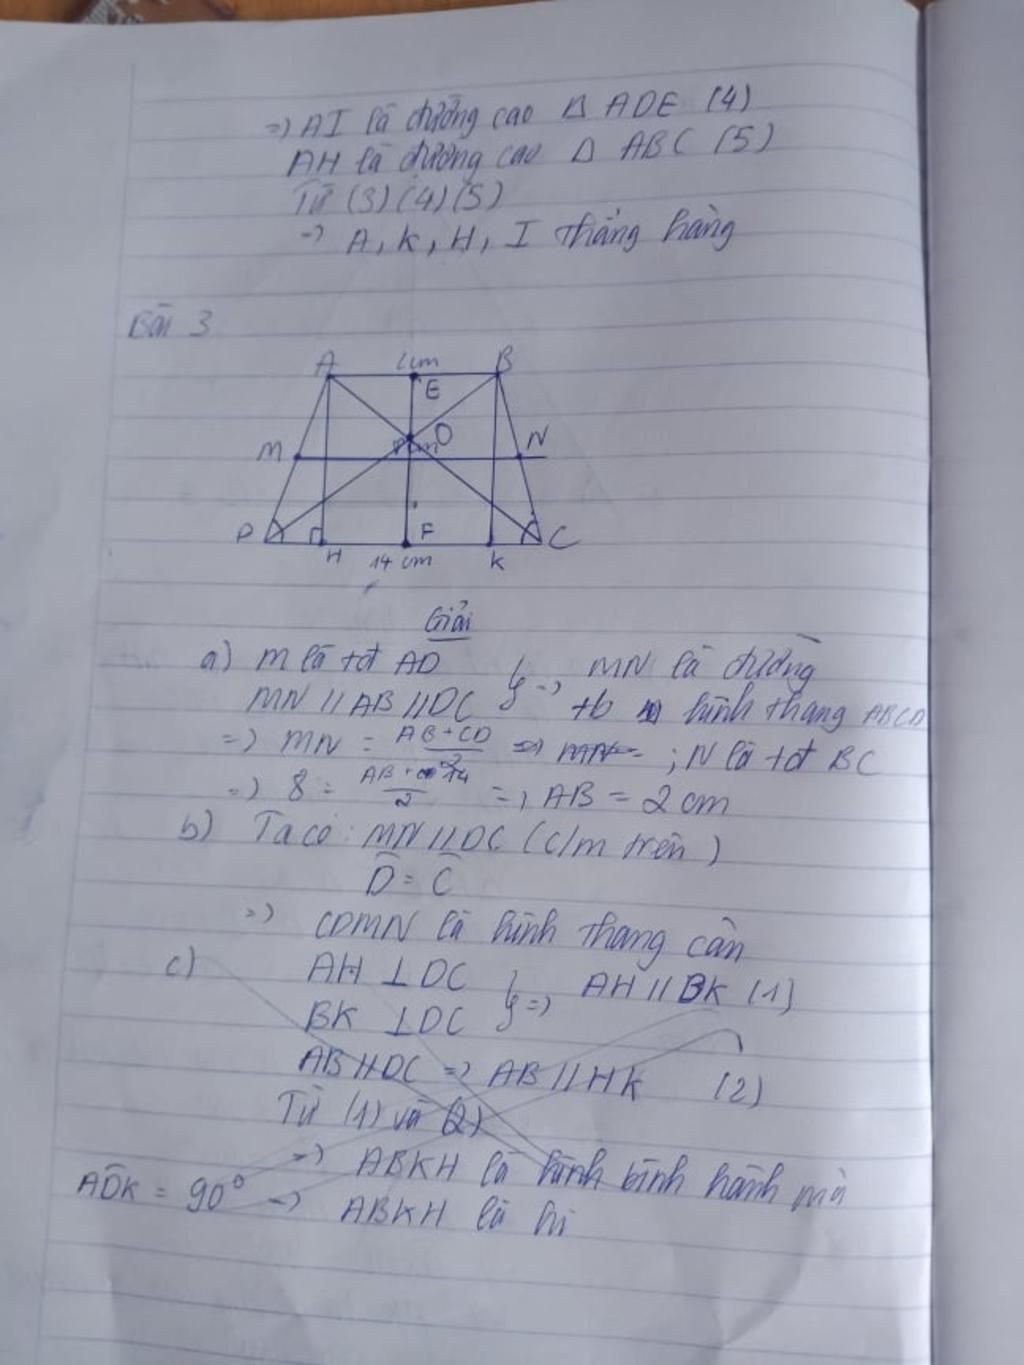 =) AI là đường cao Δ ADE (4)
AH là đường cao Δ ABC (5)
Từ (3) (4) (5)
=) A, K, H, I thẳng hàng
Bài 3
A B
E
M O N
D C
H F K
14 cm
Giải
a) M là tđ AD } =) MN là đường
MN // AB // DC tb hình thang ABCD
=) MN = AB + CD / 2 ; N là tđ BC
=) 8 = AB + 14 / 2 =) AB = 2 cm
b) Ta có : MN // DC (c/m trên)
D̂ = Ĉ
=) CDMN là hình thang cân
c) AH ⊥ DC } =) AH // BK (1)
BK ⊥ DC
AB // DC =) AB // HK (2)
Từ (1) và (2)
=) ABKH là hình bình hành mà
ADK = 90° =) ABKH là hì